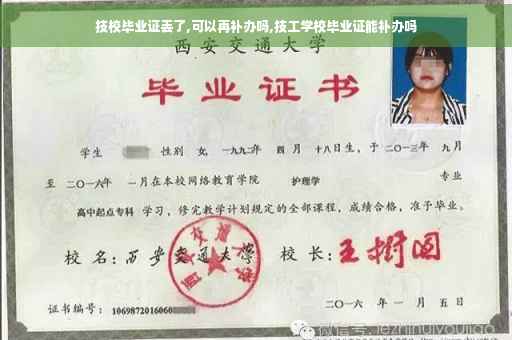 技校毕业证丢了,可以再补办吗,技工学校毕业证能补办吗
西安交通大学
毕业证书
学生 性别 女, 一九九二年 四 月 十八日生, 于 二〇一三年 九月
至 二〇一六年 一月在本校网络教育学院 护理学 专业
高中起点专科 学习, 修完教学计划规定的全部课程, 成绩合格, 准予毕业。
校 名: 西安交通大学 校 长: 王树国
西安交通大学
证书编号: 1069872016060
二〇一六 年 一 月 五 日
微信号: jezhinuiyoujiao